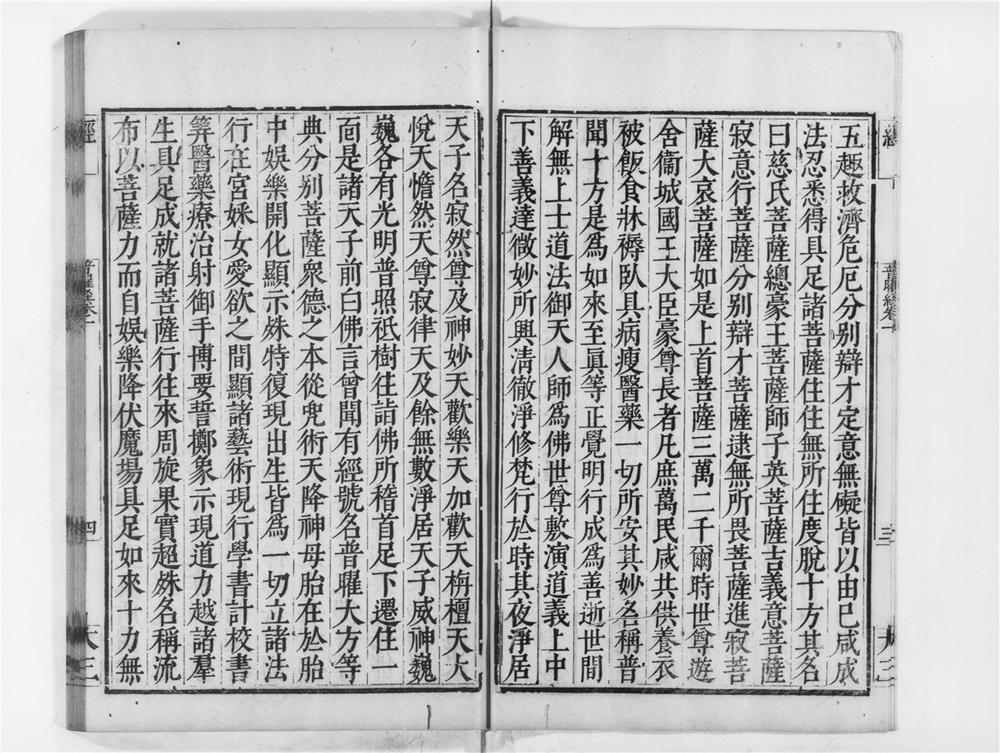 五趣救濟危厄分別辯才定意無礙皆以由己咸成
法忍悉得具足諸菩薩住住無所住度脫十方其名
曰慈氏菩薩總豪王菩薩師子英菩薩吉義意菩薩
寂意行菩薩分別辯才菩薩逮無所畏菩薩進寂菩
薩大哀菩薩如是上首菩薩三萬二千爾時世尊遊
舍衞城國王大臣豪尊長者凡庶萬民咸共供養衣
被飯食牀褥臥具病瘦醫藥一切所安其妙名稱普
聞十方是爲如來至眞等正覺明行成爲善逝世間
解無上士道法御天人師爲佛世尊敷演道義上中
下善義達微妙所興淸徹淨修梵行於時其夜淨居
天子名寂然尊及神妙天歡樂天加歡天栴檀天大
悅天憺然天尊寂律天及餘無數淨居天子威神巍
巍各有光明普照祇樹往詣佛所稽首足下還住一
面是諸天子前白佛言曾聞有經號名普曜大方等
典分別菩薩衆德之本從兜術天降神母胎在於胎
中娛樂開化顯示殊特復現出生皆爲一切立諸法
行在宮婇女愛欲之間顯諸藝術現行學書計校書
筭醫藥療治射御手博要誓擲象示現道力越諸羣
生具足成就諸菩薩行往來周旋果實超殊名稱流
布以菩薩力而自娛樂降伏魔場具足如來十力無
經
普曜經卷一
三
大三
經
普曜經卷一
四
大三